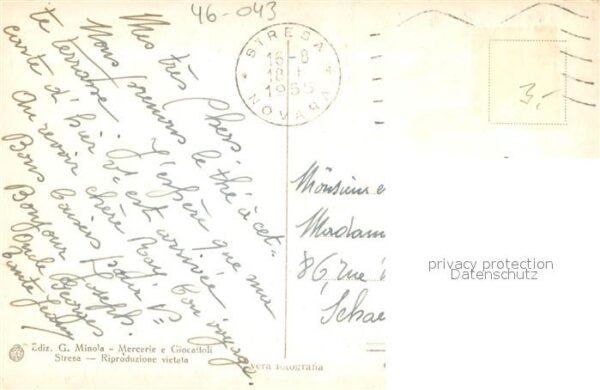 46-043
Mes très Chers.
Nous prenons le thé à cet-
te terrasse. J'espère que ma
carte d'hier v. est arrivée
Au revoir chère Ray, bon voyage
Bons baisers pour vs
Bonjour Joseph.
Oncle Georges
Tante
STRESA
16-8
18
1955
NOVARA
3.-
Monsieur e
Madam
86, rue
Schae
privacy protection
Datenschutz
Ediz. G. Minola - Mercerie e Giocattoli
Stresa — Riproduzione vietata
vera fotografia